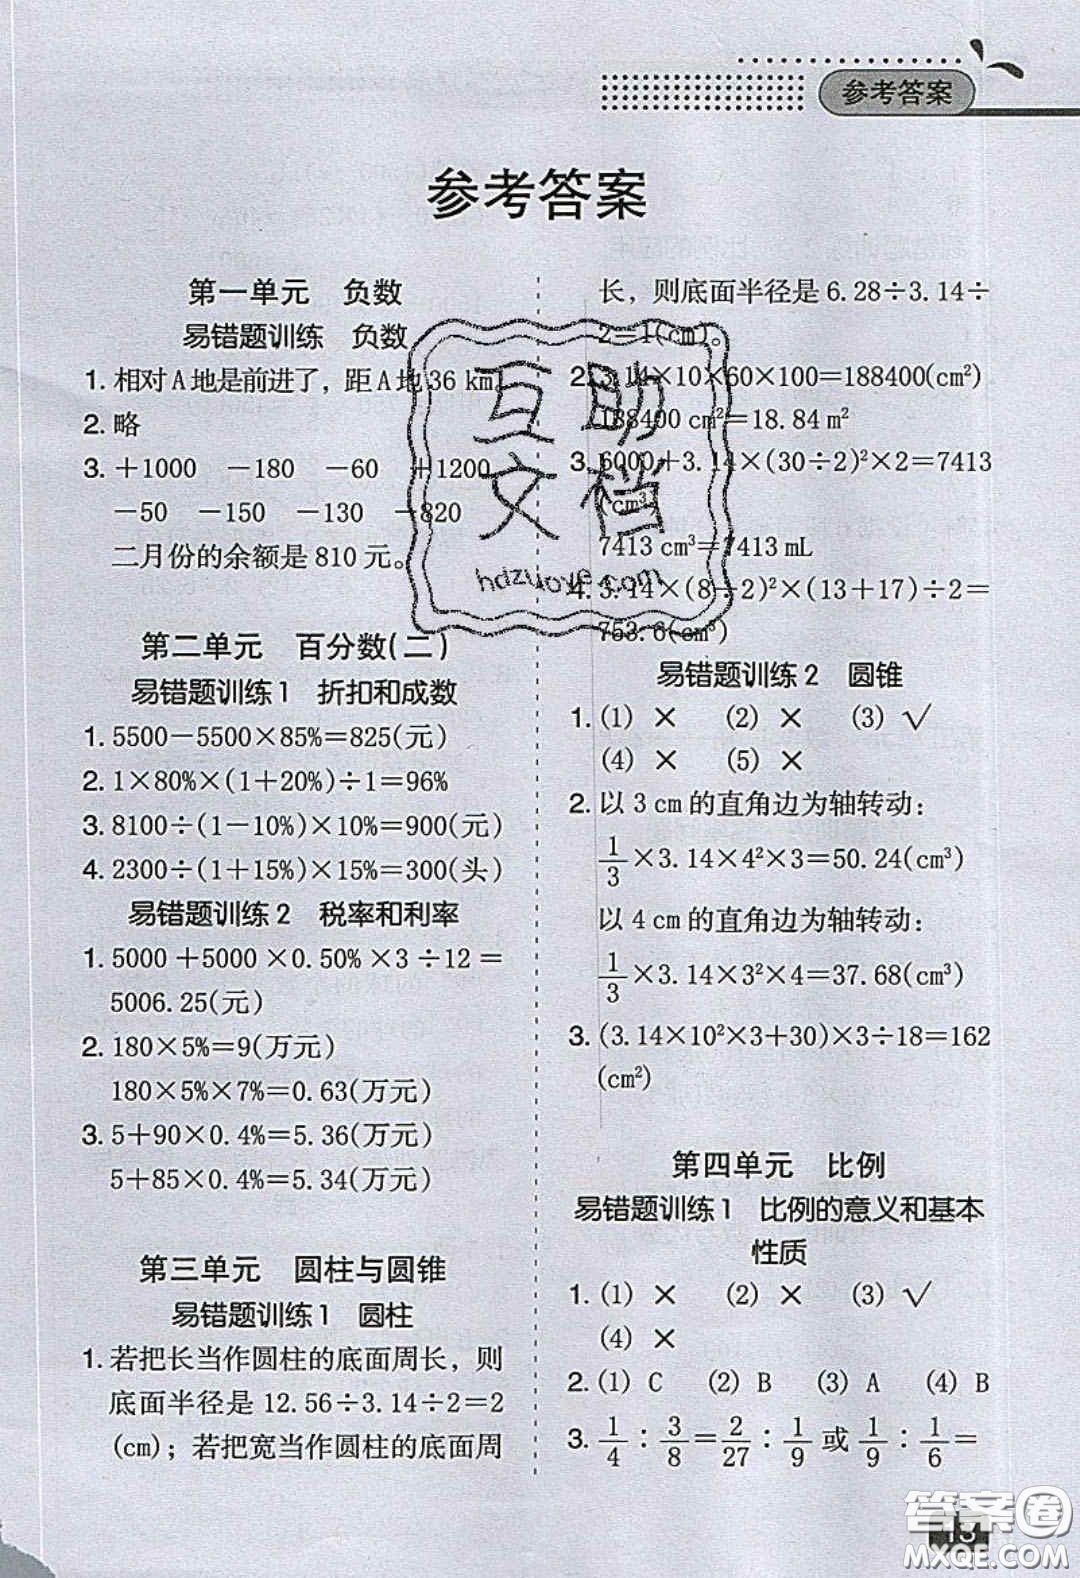 参考答案
参考答案
第一单元 负数
易错题训练 负数
1. 相对A地是前进了，距A地36 km。
2. 略
3. +1000 -180 -60 +1200
-50 -150 -130 -820
二月份的余额是810元。
第二单元 百分数(二)
易错题训练1 折扣和成数
1. 5500-5500×85%=825(元)
2. 1×80%×(1+20%)÷1=96%
3. 8100÷(1-10%)×10%=900(元)
4. 2300÷(1+15%)×15%=300(头)
易错题训练2 税率和利率
1. 5000+5000×0.50%×3÷12=
5006.25(元)
2. 180×5%=9(万元)
180×5%×7%=0.63(万元)
3. 5+90×0.4%=5.36(万元)
5+85×0.4%=5.34(万元)
第三单元 圆柱与圆锥
易错题训练1 圆柱
1. 若把长当作圆柱的底面周长，则
底面半径是12.56÷3.14÷2=2
(cm)；若把宽当作圆柱的底面周
长，则底面半径是6.28÷3.14÷
2=1(cm)。
2. 3.14×10×60×100=188400(cm²)
188400 cm²=18.84 m²
3. 6000+3.14×(30÷2)²×2=7413
(cm³)
7413 cm³=7413 mL
4. 3.14×(8÷2)²×(13+17)÷2=
753.6(cm³)
易错题训练2 圆锥
1. (1) × (2) × (3) √
(4) × (5) ×
2. 以3 cm的直角边为轴转动：
1/3×3.14×4²×3=50.24(cm³)
以4 cm的直角边为轴转动：
1/3×3.14×3²×4=37.68(cm³)
3. (3.14×10²×3+30)×3÷18=162
(cm²)
第四单元 比例
易错题训练1 比例的意义和基本
性质
1. (1) × (2) × (3) √
(4) ×
2. (1) C (2) B (3) A (4) B
3. 1/4：3/8=2/27：1/9或1/9：1/6=
13
互助
文档
hdzuoye.com
答案圈
MXQE.COM